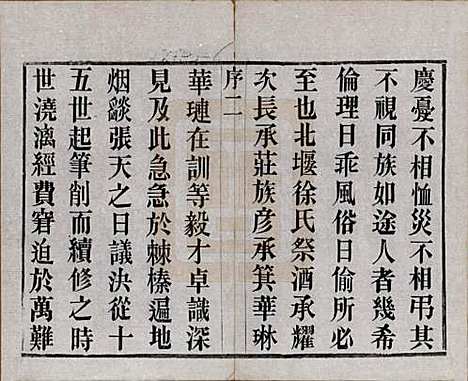 慶憂不相恤災不相弔其
不視同族如途人者幾希
倫理日乖風俗日偷所必
至也北堰徐氏祭酒承耀
次長承莊族彥承箕華琳
序二
華璉在訓等毅才卓識深
見及此急急於棘榛遍地
烟燄張天之日議決從十
五世起筆削而續修之時
世澆漓經費窘迫於萬難